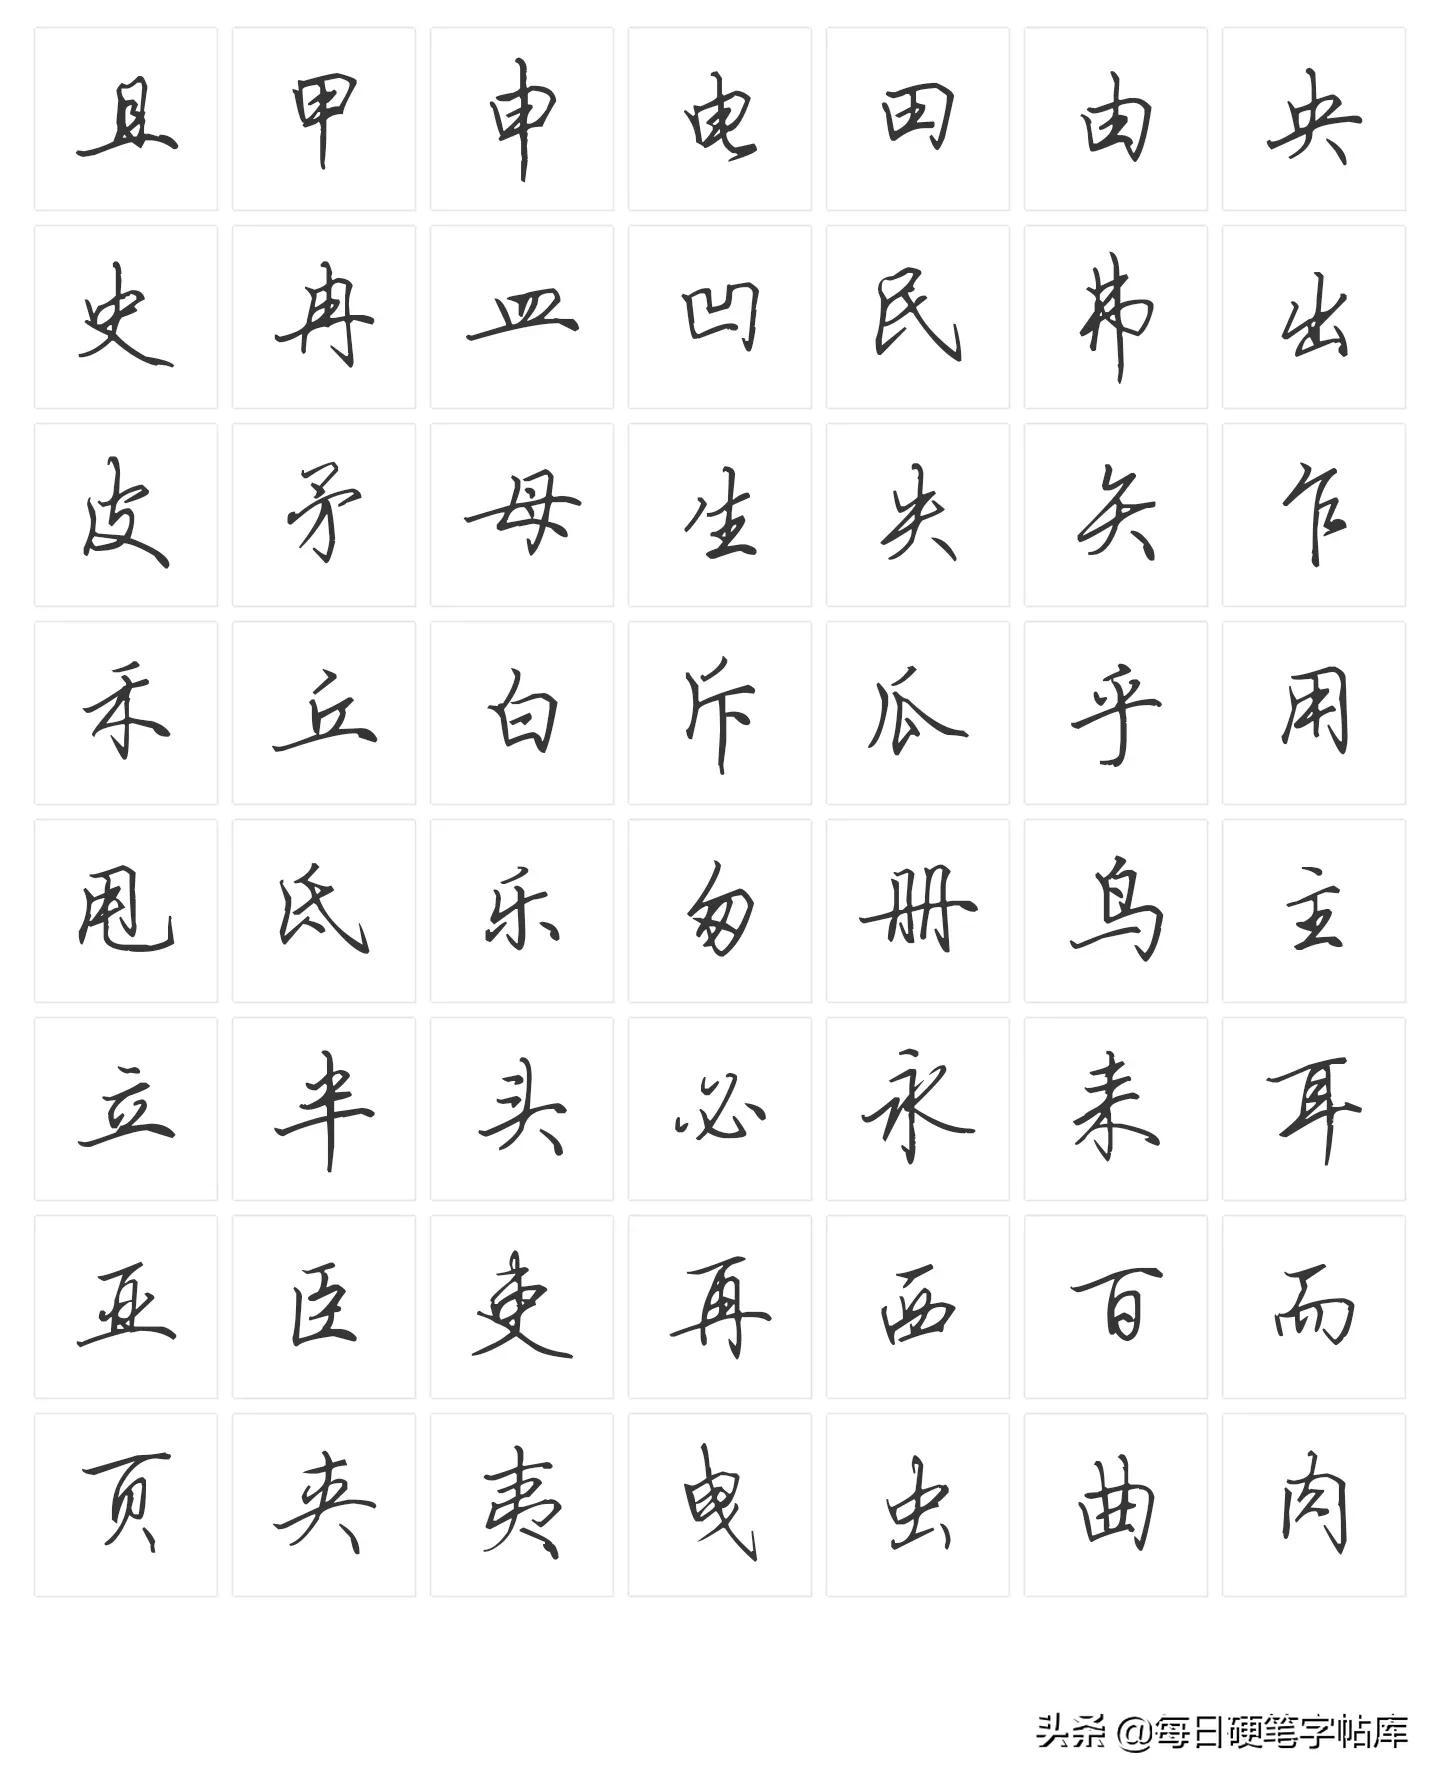 且甲申电田由央
史冉皿凹民弗出
皮矛母生失矢乍
禾丘白斥瓜乎用
甩氐乐匆册鸟主
立半头必永耒耳
亚臣吏再西百而
页夹夷曳虫曲肉
头条 @每日硬笔字帖库